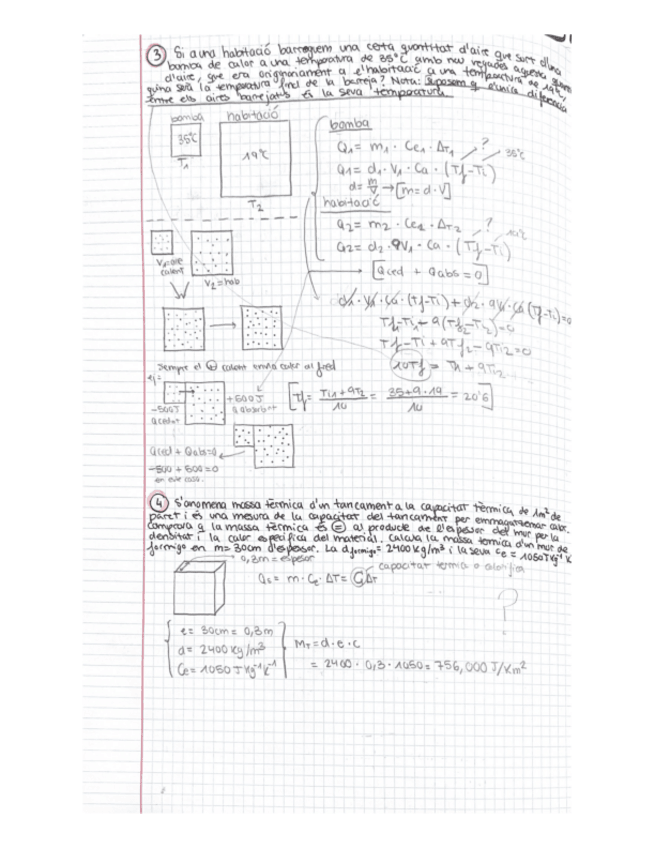 3 Si a una habitació barregem una certa quantitat d'aire que surt d'una
bomba de calor a una temperatura de 35°C amb nou vegades aquesta
d'aire, que era originariament a l'habitació a una temperatura de 19°C,
quina serà la temperatura final de la barreja? Nota: suposem q l'única diferència
entre els aires barrejats és la seva temperatura.
bomba
habitació
35°C
19°C
T1
T2
bomba
Q1 = m1 · Ce1 · ΔT1
?
35°C
Q1 = d1 · V1 · Ca · (Tf-Ti)
d = m/V → [m = d · V]
habitació
Q2 = m2 · Ce1 · ΔT2
?
19°C
Q2 = d2 · 9V1 · Ca · (Tf-Ti)
[Qced + Qabs = 0]
V1 = aire
calent
V2 = hab
d1 · V1 · Ca · (Tf-Ti) + d2 · 9V1 · Ca (Tf-Ti) = 0
Tf1-Ti1 + 9(Tf2-Ti2) = 0
Tf - Ti + 9Tf2 - 9Ti2 = 0
10Tf = Ti1 + 9Ti2
[Tf = Ti1 + 9T2 / 10 = 35 + 9 · 19 / 10 = 20'6]
Sempre el + calent envia calor al fred
ej:
-500J
Qcedent
+500J
Qabsorbent
Qced + Qabs = 0
-500 + 500 = 0
en este caso.
4 S'anomena massa tèrmica d'un tancament a la capacitat tèrmica de 1m² de
paret i és una mesura de la capacitat del tancament per emmagatzemar calor.
Comprova q la massa tèrmica és = al producte de l'espesor del mur per la
densitat i la calor específica del material. Calcula la massa tèrmica d'un mur de
formigó en m = 30cm d'espesor. La dformigó = 2400 kg/m³ i la seva Ce = 1050 J Kg⁻¹ K
0,3m = espesor
Qs = m · Ce · ΔT = C ΔT
capacitat tèrmica o calorífica
?
e = 30cm = 0,3m
d = 2400 Kg/m³
Ce = 1050 J Kg⁻¹ K⁻¹
MT = d · e · c
= 2400 · 0,3 · 1050 = 756,000 J/Km²